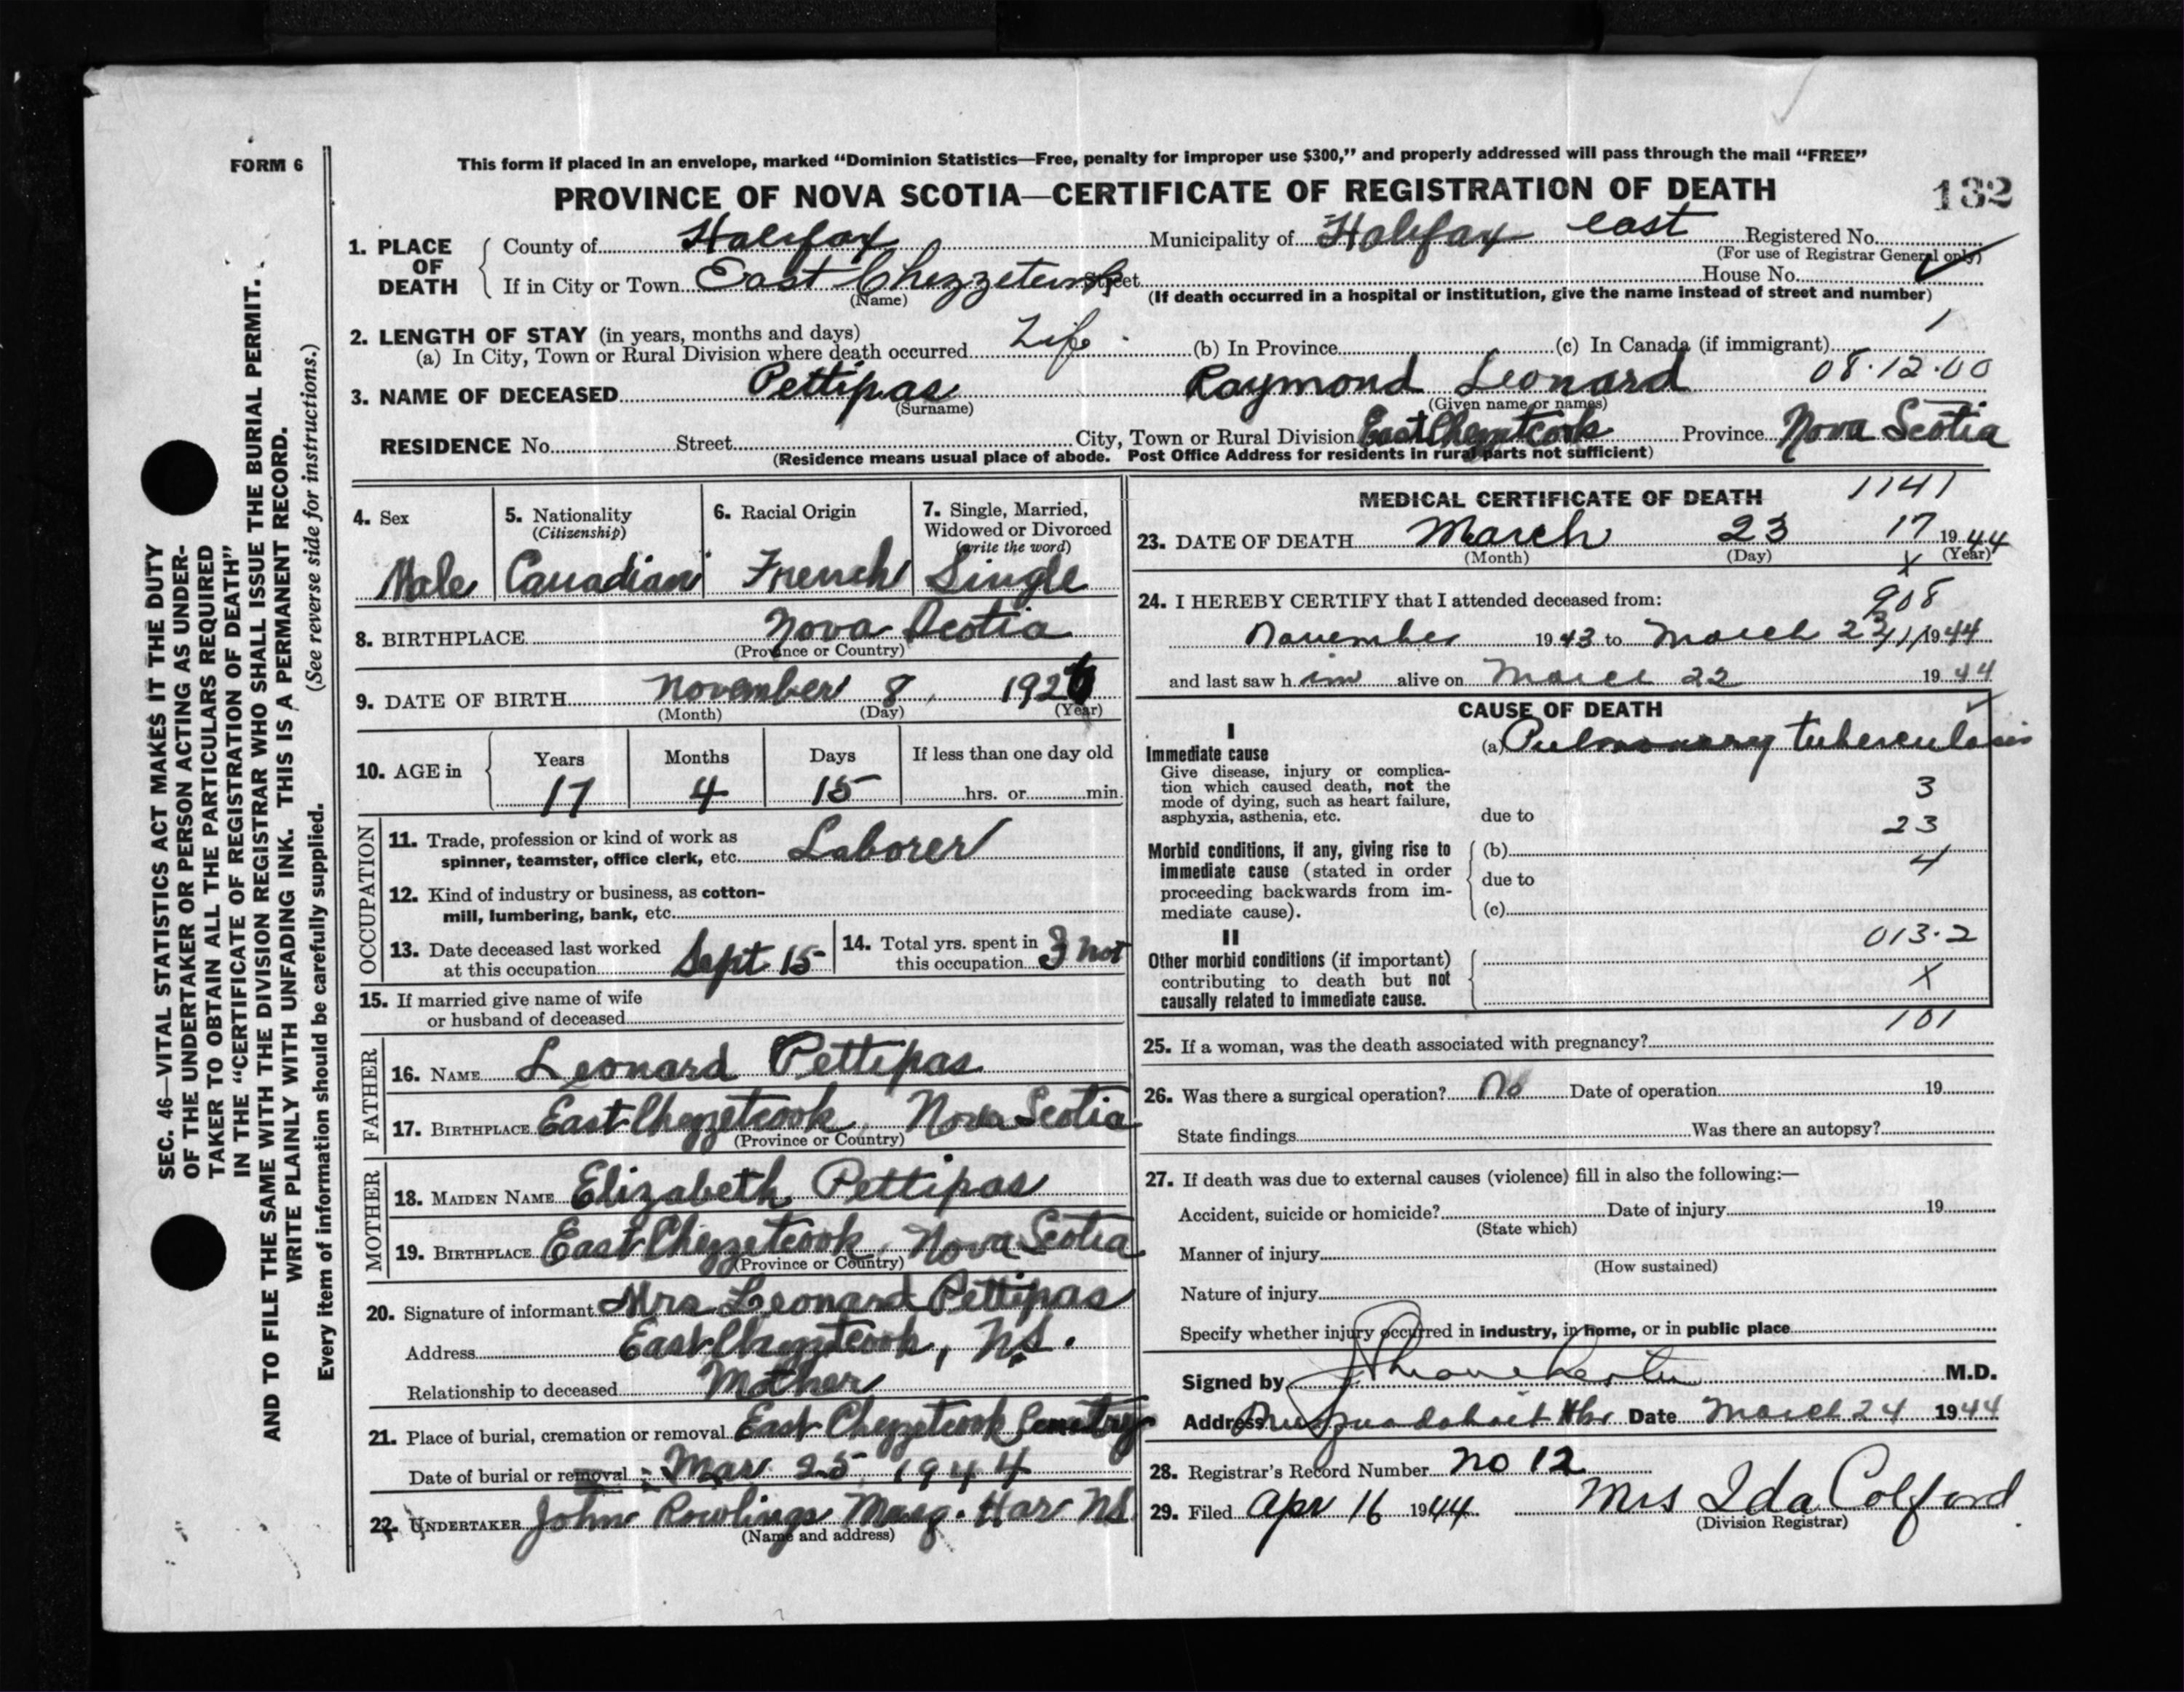 FORM 6
This form if placed in an envelope, marked “Dominion Statistics—Free, penalty for improper use $300,” and properly addressed will pass through the mail “FREE”
PROVINCE OF NOVA SCOTIA—CERTIFICATE OF REGISTRATION OF DEATH
132
1. PLACE OF DEATH
County of Halifax Municipality of Halifax east Registered No.
(For use of Registrar General only)
If in City or Town East Chezzetcook Street House No.
(Name) (If death occurred in a hospital or institution, give the name instead of street and number)
2. LENGTH OF STAY (in years, months and days)
(a) In City, Town or Rural Division where death occurred Life (b) In Province (c) In Canada (if immigrant) 1
08·12·00
3. NAME OF DECEASED Pettipas Raymond Leonard
(Surname) (Given name or names)
RESIDENCE No. Street City, Town or Rural Division East Chezzetcook Province Nova Scotia
(Residence means usual place of abode. Post Office Address for residents in rural parts not sufficient)
4. Sex
Male
5. Nationality
(Citizenship)
Canadian
6. Racial Origin
French
7. Single, Married, Widowed or Divorced
(write the word)
Single
8. BIRTHPLACE Nova Scotia
(Province or Country)
9. DATE OF BIRTH November 8, 1926
(Month) (Day) (Year)
10. AGE in Years Months Days If less than one day old
17 4 15 hrs. or min.
OCCUPATION
11. Trade, profession or kind of work as
spinner, teamster, office clerk, etc. Laborer
12. Kind of industry or business, as cotton-
mill, lumbering, bank, etc.
13. Date deceased last worked
at this occupation Sept 15
14. Total yrs. spent in
this occupation 3
15. If married give name of wife
or husband of deceased
FATHER
16. NAME Leonard Pettipas
17. BIRTHPLACE East Chezzetcook, Nova Scotia
(Province or Country)
MOTHER
18. MAIDEN NAME Elizabeth Pettipas
19. BIRTHPLACE East Chezzetcook, Nova Scotia
(Province or Country)
20. Signature of informant Mrs Leonard Pettipas
Address East Chezzetcook, N.S.
Relationship to deceased Mother
21. Place of burial, cremation or removal East Chezzetcook Cemetry
Date of burial or removal Mar 25, 1944
22. UNDERTAKER John Rowlings Musq. Har NS
(Name and address)
MEDICAL CERTIFICATE OF DEATH
1141
23. DATE OF DEATH March 23 17 1944
(Month) (Day) (Year)
X
24. I HEREBY CERTIFY that I attended deceased from: 908
November 1943 to March 23 1944
and last saw him alive on March 22 1944
CAUSE OF DEATH
I
Immediate cause
Give disease, injury or complica-
tion which caused death, not the
mode of dying, such as heart failure,
asphyxia, asthenia, etc.
(a) Pulmonary tuberculosis
3
due to
23
Morbid conditions, if any, giving rise to
immediate cause (stated in order
proceeding backwards from im-
mediate cause).
(b)
4
due to
(c)
II
Other morbid conditions (if important)
contributing to death but not
causally related to immediate cause.
013·2
X
101
25. If a woman, was the death associated with pregnancy?
26. Was there a surgical operation? No Date of operation 19
State findings Was there an autopsy?
27. If death was due to external causes (violence) fill in also the following:—
Accident, suicide or homicide? Date of injury 19
(State which)
Manner of injury
(How sustained)
Nature of injury
Specify whether injury occurred in industry, in home, or in public place
Signed by M.D.
Address Musquodoboit Hbr Date March 24 1944
28. Registrar's Record Number No 12
29. Filed Apr 16 1944 Mrs Ida Colford
(Division Registrar)
SEC. 46—VITAL STATISTICS ACT MAKES IT THE DUTY
OF THE UNDERTAKER OR PERSON ACTING AS UNDER-
TAKER TO OBTAIN ALL THE PARTICULARS REQUIRED
IN THE “CERTIFICATE OF REGISTRATION OF DEATH”
AND TO FILE THE SAME WITH THE DIVISION REGISTRAR WHO SHALL ISSUE THE BURIAL PERMIT.
WRITE PLAINLY WITH UNFADING INK. THIS IS A PERMANENT RECORD.
Every item of information should be carefully supplied. (See reverse side for instructions.)